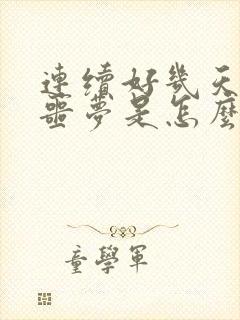 連續好幾天
噩夢是怎麼
童學軍